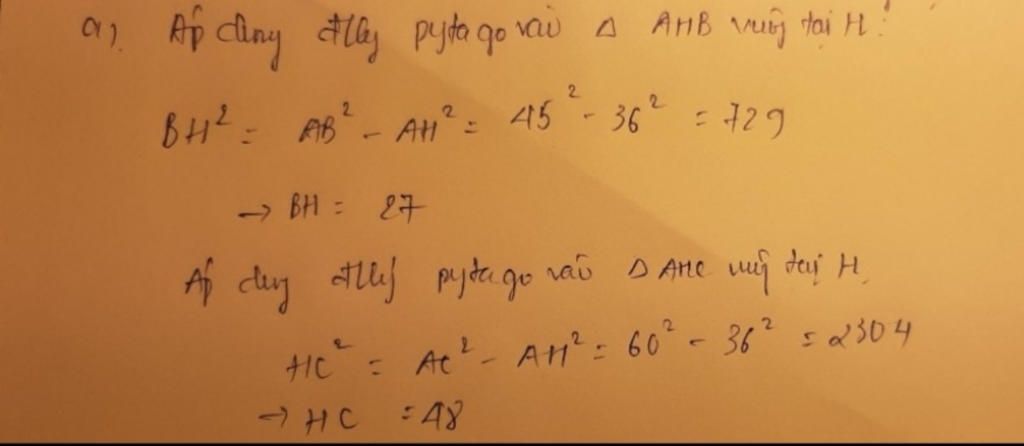 a). Áp dụng đlly pytago vào Δ AHB vuông tại H:
BH² = AB² - AH² = 45² - 36² = 729
→ BH = 27
Áp dụng đlly pytago vào Δ AHC vuông tại H.
HC² = AC² - AH² = 60² - 36² = 2304
→ HC = 48